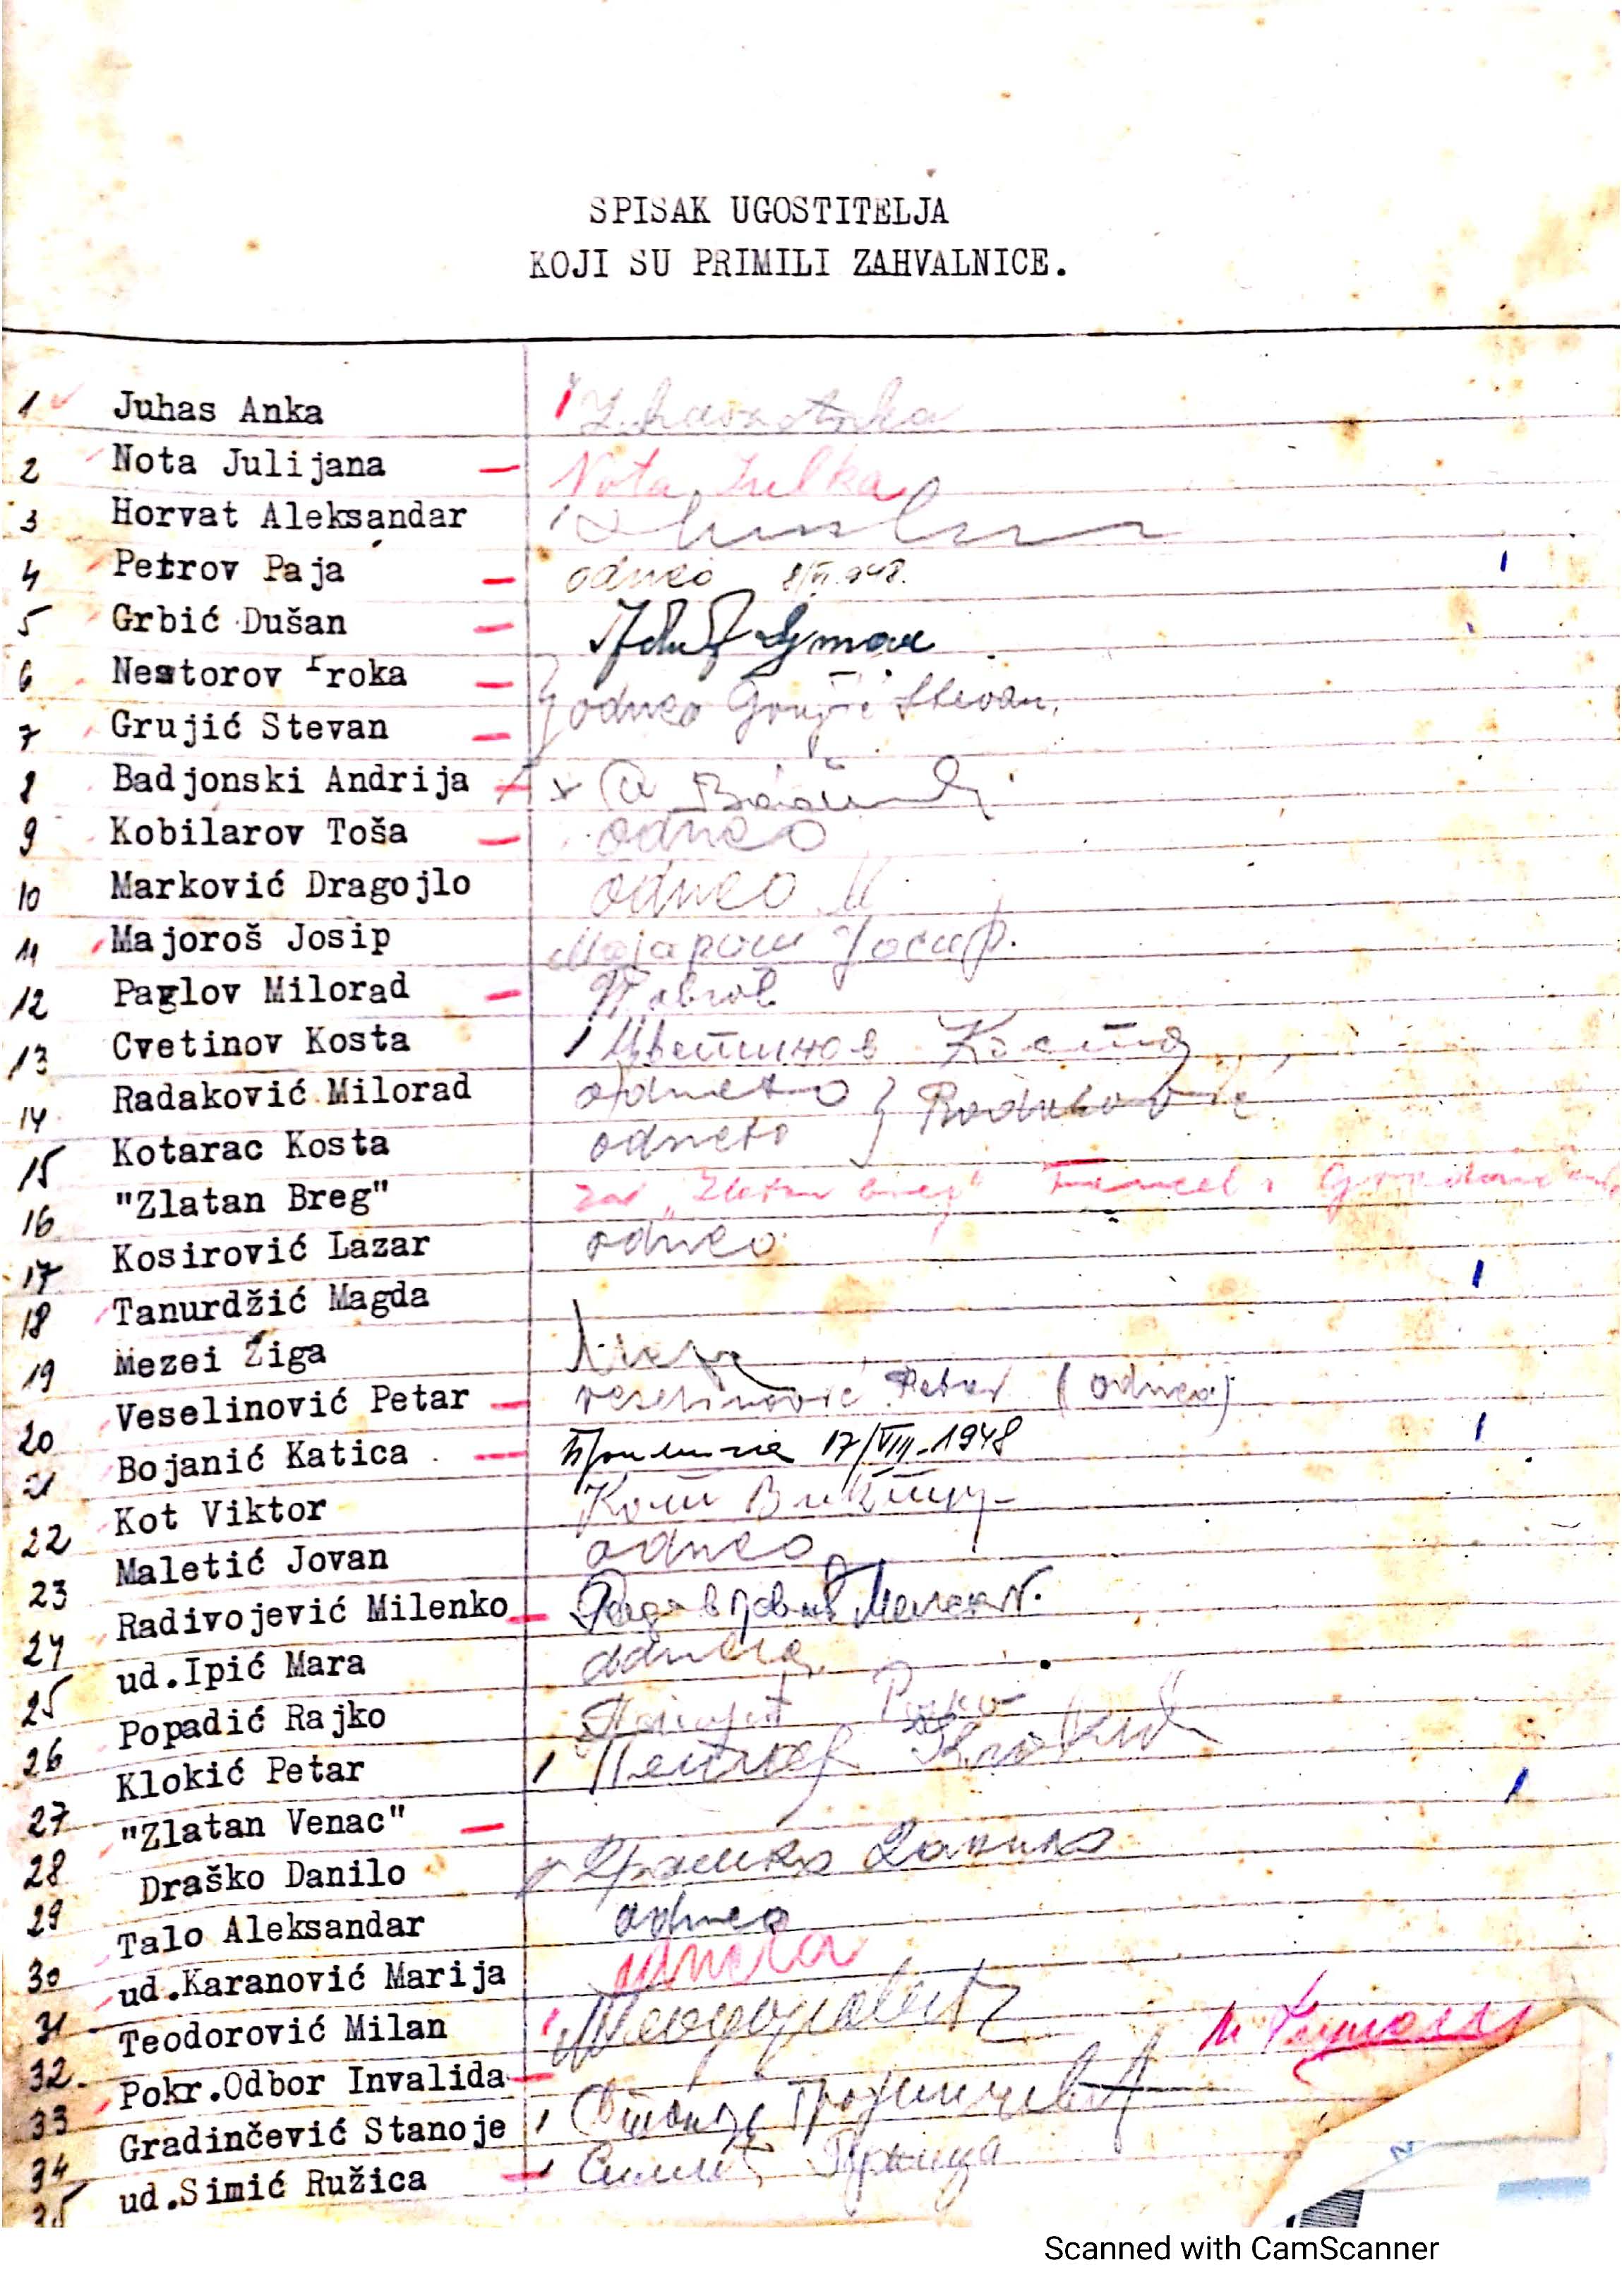 SPISAK UGOSTITELJA
KOJI SU PRIMILI ZAHVALNICE.
1 Juhas Anka
2 Nota Julijana Nota Julka
3 Horvat Aleksandar
4 Petrov Paja odneo 8/VI.948.
5 Grbić Dušan
6 Nestorov Proka
7 Grujić Stevan odneo Grujić Stevan,
8 Badjonski Andrija
9 Kobilarov Toša odneo
10 Marković Dragojlo odneo
11 Majoroš Josip Мајарош Јосиф.
12 Paglov Milorad
13 Cvetinov Kosta Цветинов Коста
14 Radaković Milorad odneto } Radaković
15 Kotarac Kosta odneto
16 "Zlatan Breg" za "Zlatan breg"
17 Kosirović Lazar odneo
18 Tanurdžić Magda
19 Mezei Žiga
20 Veselinović Petar Veselinović Petar (odneo)
21 Bojanić Katica Примила 17/VIII-1948
22 Kot Viktor Кот Виктор
23 Maletić Jovan odneo
24 Radivojević Milenko
25 ud.Ipić Mara odnela
26 Popadić Rajko
27 Klokić Petar Петар Клокић
28 "Zlatan Venac"
29 Draško Danilo Драшко Данило
30 Talo Aleksandar odneo
31 ud.Karanović Marija odnela
32 Teodorović Milan Теодоровић
33 Pokr.Odbor Invalida
34 Gradinčević Stanoje Станоје
35 ud.Simić Ružica Симић Ружица
Scanned with CamScanner